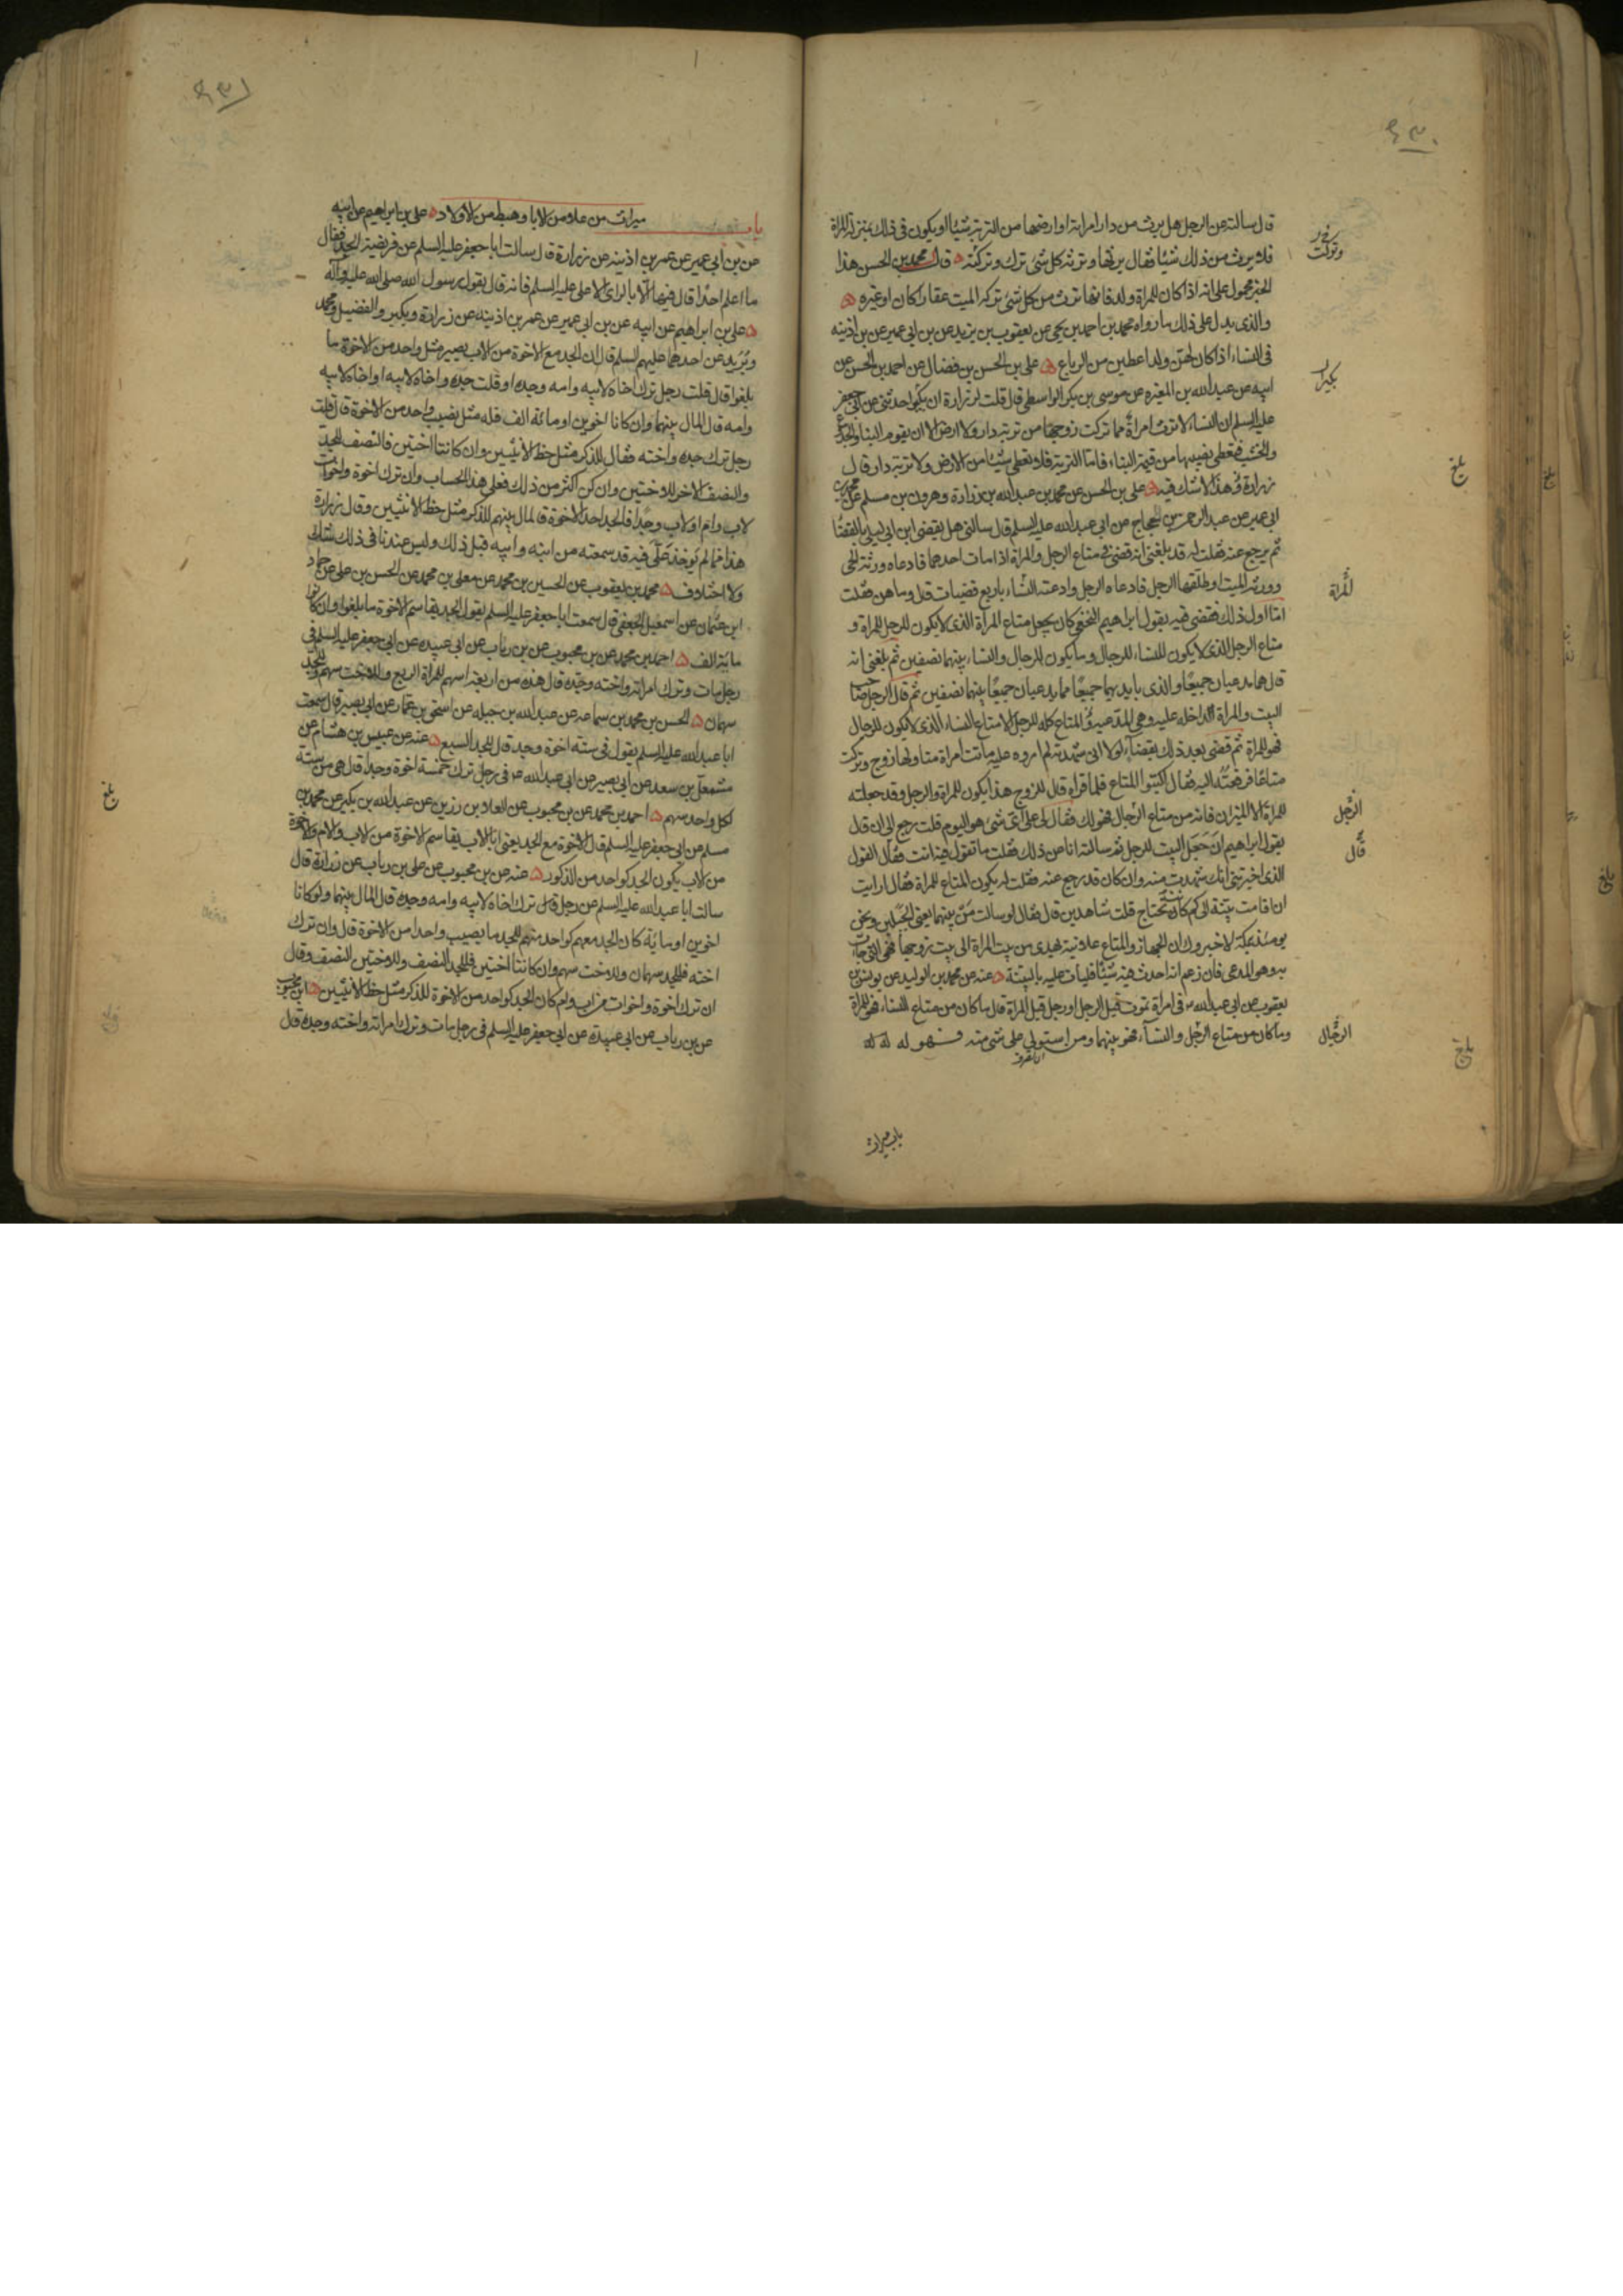 ٤٣٠
قال سالته عن الرجل هل يرث من دار امراته او ارضها من التربة شيئا او يكون فى ذلك بمنزلة المراة
فلا يرث من ذلك شيئا فقال يرثها وترثه كل شئ ترك وتركته قال محمد بن الحسن هذا
الخبر محمول على انه اذا كان للمراة ولد فانها ترث من كل شئ تركه الميت عقارا كان او غيره
والذى يدل على ذلك ما رواه محمد بن احمد بن يحيى عن يعقوب بن يزيد عن بن ابى عمير عن بن اذينه
فى النساء اذا كان لهن ولد اعطين من الرباع على بن الحسن بن فضال عن احمد بن الحسن عن
ابيه عن عبد الله بن المغيره عن موسى بن بكر الواسطى قال قلت لزرارة ان بكيرا حدثنى عن ابى جعفر
عليه السلم ان النساء لا ترث امراة مما تركت زوجها من تربة دار ولا ارض الا ان يقوم البناء والجذوع
والخشب فتعطى نصيبها من قيمة البناء فاما التربة فلا تعطى شيئا من الارض ولا تربة دار قال
زرارة وهذا لا شك فيه على بن الحسن عن محمد بن عبد الله بن زرارة وهرون بن مسلم عن محمد بن
ابى عمير عن عبد الرحمن بن الحجاج عن ابى عبد الله عليه السلم قال سالنى هل يقضى ابن ابى ليلى بالقضاء
ثم يرجع عنه فقلت له قد بلغنى انه قضى فى متاع الرجل والمراة اذا مات احدهما فادعاه ورثة الحى
وورثه الميت او طلقها الرجل فادعاه الرجل وادعته النساء باربع قضيات قال وما هن فقلت
اما اول ذلك فقضى فيه بقول ابراهيم النخعى كان يجعل متاع المراة الذى لا يكون للرجل للمراة و
متاع الرجل الذى لا يكون للنساء للرجال وما يكون للرجال والنساء بينهما نصفين ثم بلغنى انه
قال هما مدعيان جميعا والذى بايديهما جميعا مما يدعيان جميعا بينهما نصفين ثم قال الرجل صاحب
البيت والمراة الداخله عليه وهى المدعيه فالمتاع كله للرجل الا متاع النساء الذى لا يكون للرجال
فهو للمراة ثم قضى بعد ذلك بقضاء لولا انى شهدته لم اروه عليه ماتت امراة منا ولها زوج وتركت
متاعا فرفعته اليه فقال اكتبوا المتاع فلما قراه قال للزوج هذا يكون للمراة والرجل وقد جعلته
للمراة الا الميزان فانه من متاع الرجال فهو لك فقال لى على اى شئ هو اليوم قلت رجع الى ان قال
بقول ابراهيم ان جعل البيت للرجل ثم سالته انا عن ذلك فقلت ما تقول فيه انت فقال القول
الذى اخبرتنى انك شهدت منه وان كان قد رجع عنه فقلت له يكون المتاع للمراة فقال ارايت
ان اقامت بينة الى كم كانت تحتاج قلت شاهدين قال فقال لو سالت من بينهما يعنى الجبلين ونحن
يومئذ بمكة لاخبروك ان الجهاز والمتاع علانية يهدى من بيت المراة الى بيت زوجها فهى التى جاءت
به وهو المدعى فان زعم انه احدث فيه شيئا فليات عليه بالبينة عنه عن محمد بن الوليد عن يونس بن
يعقوب عن ابى عبد الله ع فى امراة تموت قبل الرجل او رجل قبل المراة قال ما كان من متاع النساء فهو للمراة
وما كان من متاع الرجل والنساء فهو بينهما ومن استولى على شئ منه فهو له
باب ميراث
وتركت
بكيرا
المراة
الرجل
قال
الرجال
بلغ
بلغ
٤٣١
باب ميراث من علا من الابا وهبط من الاولاد على بن ابراهيم عن ابيه
عن بن ابى عمير عن عمر بن اذينه عن زرارة قال سالت ابا جعفر عليه السلم عن فريضة الجد فقال
ما اعلم احدا قال فيها الا بالراى الا على عليه السلم فانه قال بقول رسول الله صلى الله عليه وآله
على بن ابراهيم عن ابيه عن بن ابى عمير عن عمر بن اذينه عن زرارة وبكير والفضيل ومحمد
وبريد عن احدهما عليهم السلم قال ان الجد مع الاخوة من الاب يصير مثل واحد من الاخوة ما
بلغوا قال قلت رجل ترك اخاه لابيه وامه وجده او قلت جده واخاه لابيه او اخاه لابيه
وامه قال المال بينهما وان كانا اخوين او مائة الف فله مثل نصيب واحد من الاخوة قال قلت
رجل ترك جده واخته فقال للذكر مثل حظ الانثيين وان كانتا اختين فالنصف للجد
والنصف الاخر للاختين وان كن اكثر من ذلك فعلى هذا الحساب وان ترك اخوة واخوات
لاب وام او لاب وجدا فالجد احد الاخوة فالمال بينهم للذكر مثل حظ الانثيين وقال زرارة
هذا مما لم يوخذ على فيه قد سمعته من ابنه وابيه قبل ذلك وليس عندنا فى ذلك شك
ولا اختلاف محمد بن يعقوب عن الحسين بن محمد عن معلى بن محمد عن الحسن بن على عن حماد
ابن عثمان عن اسمعيل الجعفى قال سمعت ابا جعفر عليه السلم يقول الجد يقاسم الاخوة ما بلغوا وان كانوا
مائة الف احمد بن محمد عن بن محبوب عن بن رئاب عن ابى عبيده عن ابى جعفر عليه السلم فى
رجل مات وترك امراته واخته وجده قال هذه من اربعة اسهم للمراة الربع وللاخت سهم وللجد
سهمان الحسن بن محمد بن سماعه عن عبد الله بن جبله عن اسحق بن عمار عن ابى بصير قال سمعت
ابا عبد الله عليه السلم يقول فى ستة اخوة وجد قال للجد السبع عنه عن عبيس بن هشام عن
مشمعل بن سعد عن ابى بصير عن ابى عبد الله ع فى رجل ترك خمسة اخوة وجدا قال هى من ستة
لكل واحد سهم احمد بن محمد عن بن محبوب عن العلا بن رزين عن عبد الله بن بكير عن محمد بن
مسلم عن ابى جعفر عليه السلم قال الاخوة مع الجد يعنى ابا الاب يقاسم الاخوة من الاب والام والاخوة
من الاب يكون الجد كواحد من الذكور عنه عن بن محبوب عن على بن رباب عن زرارة قال
سالت ابا عبد الله عليه السلم عن رجل ترك اخاه لابيه وامه وجده قال المال بينهما ولو كانا
اخوين او مائة كان الجد معهم كواحد منهم للجد ما يصيب واحدا من الاخوة قال وان ترك
اخته فللجد سهمان وللاخت سهم وان كانتا اختين فللجد النصف وللاختين النصف وقال
ان ترك اخوة واخوات من اب وام كان الجد كواحد من الاخوة للذكر مثل حظ الانثيين ابن محبوب
عن بن رباب عن ابى عبيدة عن ابى جعفر عليه السلم فى رجل مات وترك امراته واخته وجده قال
بلغ